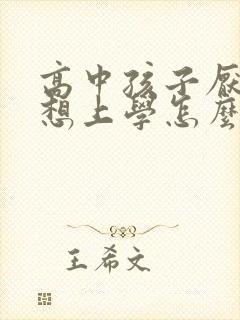 高中孩子厭
想上學怎麼
王希文